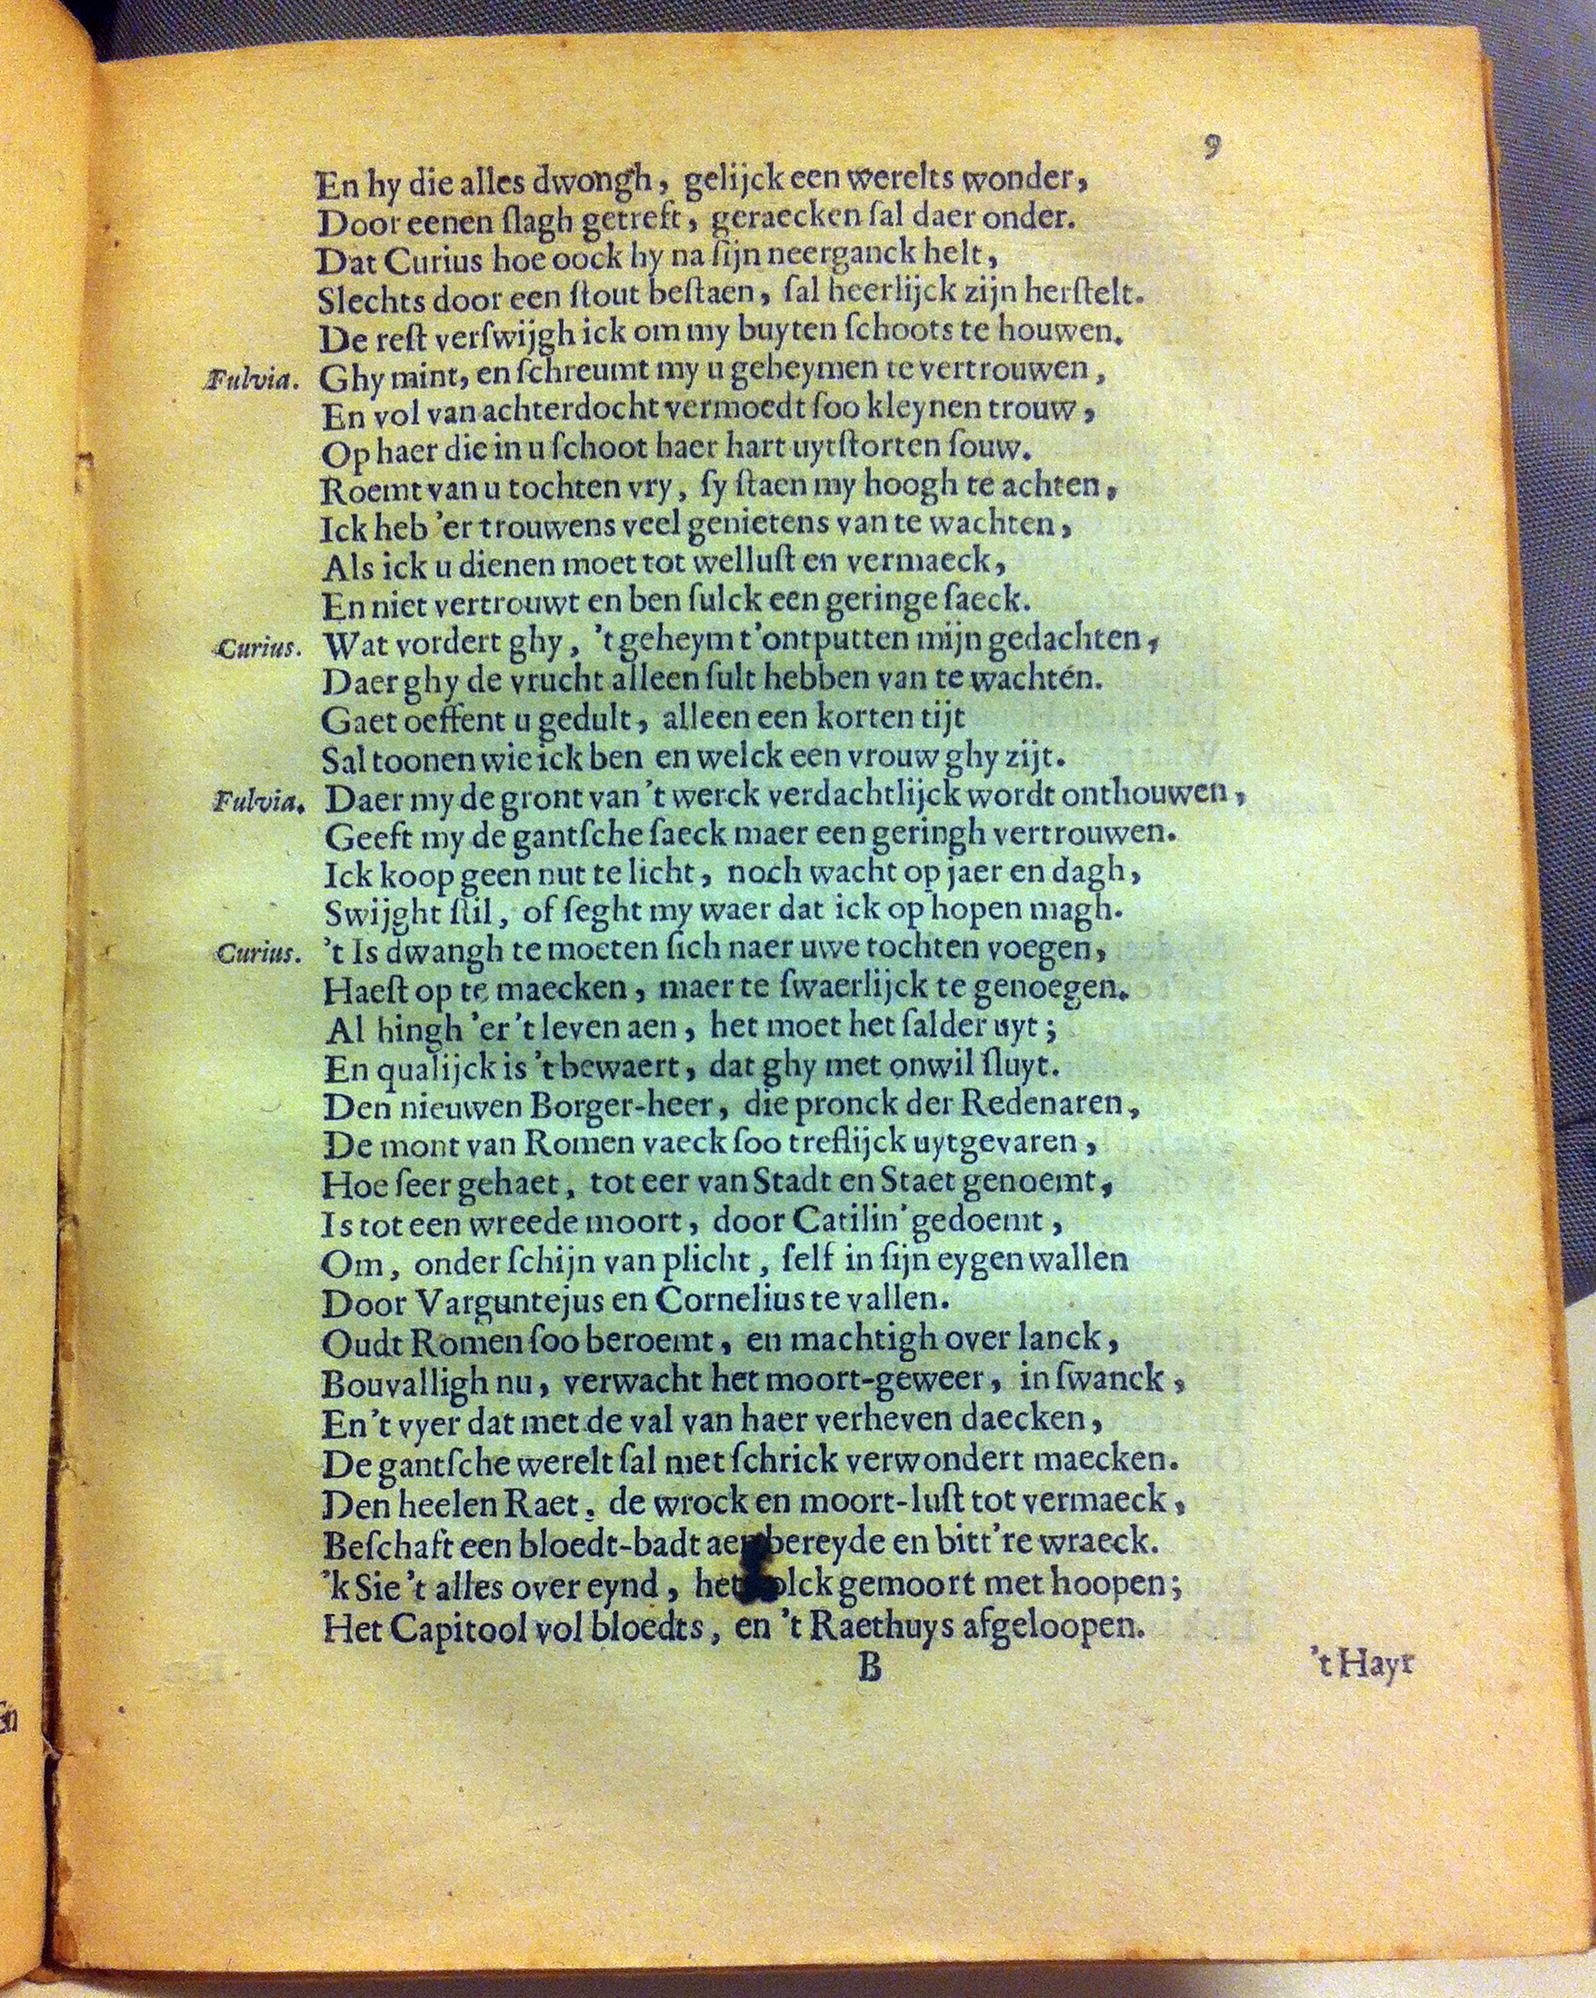 9
En hy die alles dwongh, gelijck een werelts wonder,
Door eenen ſlagh getreft, geraecken ſal daer onder.
Dat Curius hoe oock hy na ſijn neerganck helt,
Slechts door een ſtout beſtaen, ſal heerlijck zijn herſtelt.
De reſt verſwijgh ick om my buyten ſchoots te houwen.
Fulvia. Ghy mint, en ſchreumt my u geheymen te vertrouwen,
En vol van achterdocht vermoedt ſoo kleynen trouw,
Op haer die in u ſchoot haer hart uytſtorten ſouw.
Roemt van u tochten vry, ſy ſtaen my hoogh te achten,
Ick heb 'er trouwens veel genietens van te wachten,
Als ick u dienen moet tot welluſt en vermaeck,
En niet vertrouwt en ben ſulck een geringe ſaeck.
Curius. Wat vordert ghy, 't geheym t'ontputten mijn gedachten,
Daer ghy de vrucht alleen ſult hebben van te wachtén.
Gaet oeffent u gedult, alleen een korten tijt
Sal toonen wie ick ben en welck een vrouw ghy zijt.
Fulvia. Daer my de gront van 't werck verdachtlijck wordt onthouwen,
Geeft my de gantſche ſaeck maer een geringh vertrouwen.
Ick koop geen nut te licht, noch wacht op jaer en dagh,
Swijght ſtil, of ſeght my waer dat ick op hopen magh.
Curius. 't Is dwangh te moeten ſich naer uwe tochten voegen,
Haeſt op te maecken, maer te ſwaerlijck te genoegen.
Al hingh 'er 't leven aen, het moet het ſalder uyt;
En qualijck is 't bewaert, dat ghy met onwil ſluyt.
Den nieuwen Borger-heer, die pronck der Redenaren,
De mont van Romen vaeck ſoo treflijck uytgevaren,
Hoe ſeer gehaet, tot eer van Stadt en Staet genoemt,
Is tot een wreede moort, door Catilin' gedoemt,
Om, onder ſchijn van plicht, ſelf in ſijn eygen wallen
Door Varguntejus en Cornelius te vallen.
Oudt Romen ſoo beroemt, en machtigh over lanck,
Bouvalligh nu, verwacht het moort-geweer, in ſwanck,
En 't vyer dat met de val van haer verheven daecken,
De gantſche werelt ſal met ſchrick verwondert maecken.
Den heelen Raet, de wrock en moort-luſt tot vermaeck,
Beſchaft een bloedt-badt bereyde en bitt're wraeck.
'k Sie 't alles over eynd, het gemoort met hoopen;
Het Capitool vol bloedts, en 't Raethuys afgeloopen.
B
't Hayr